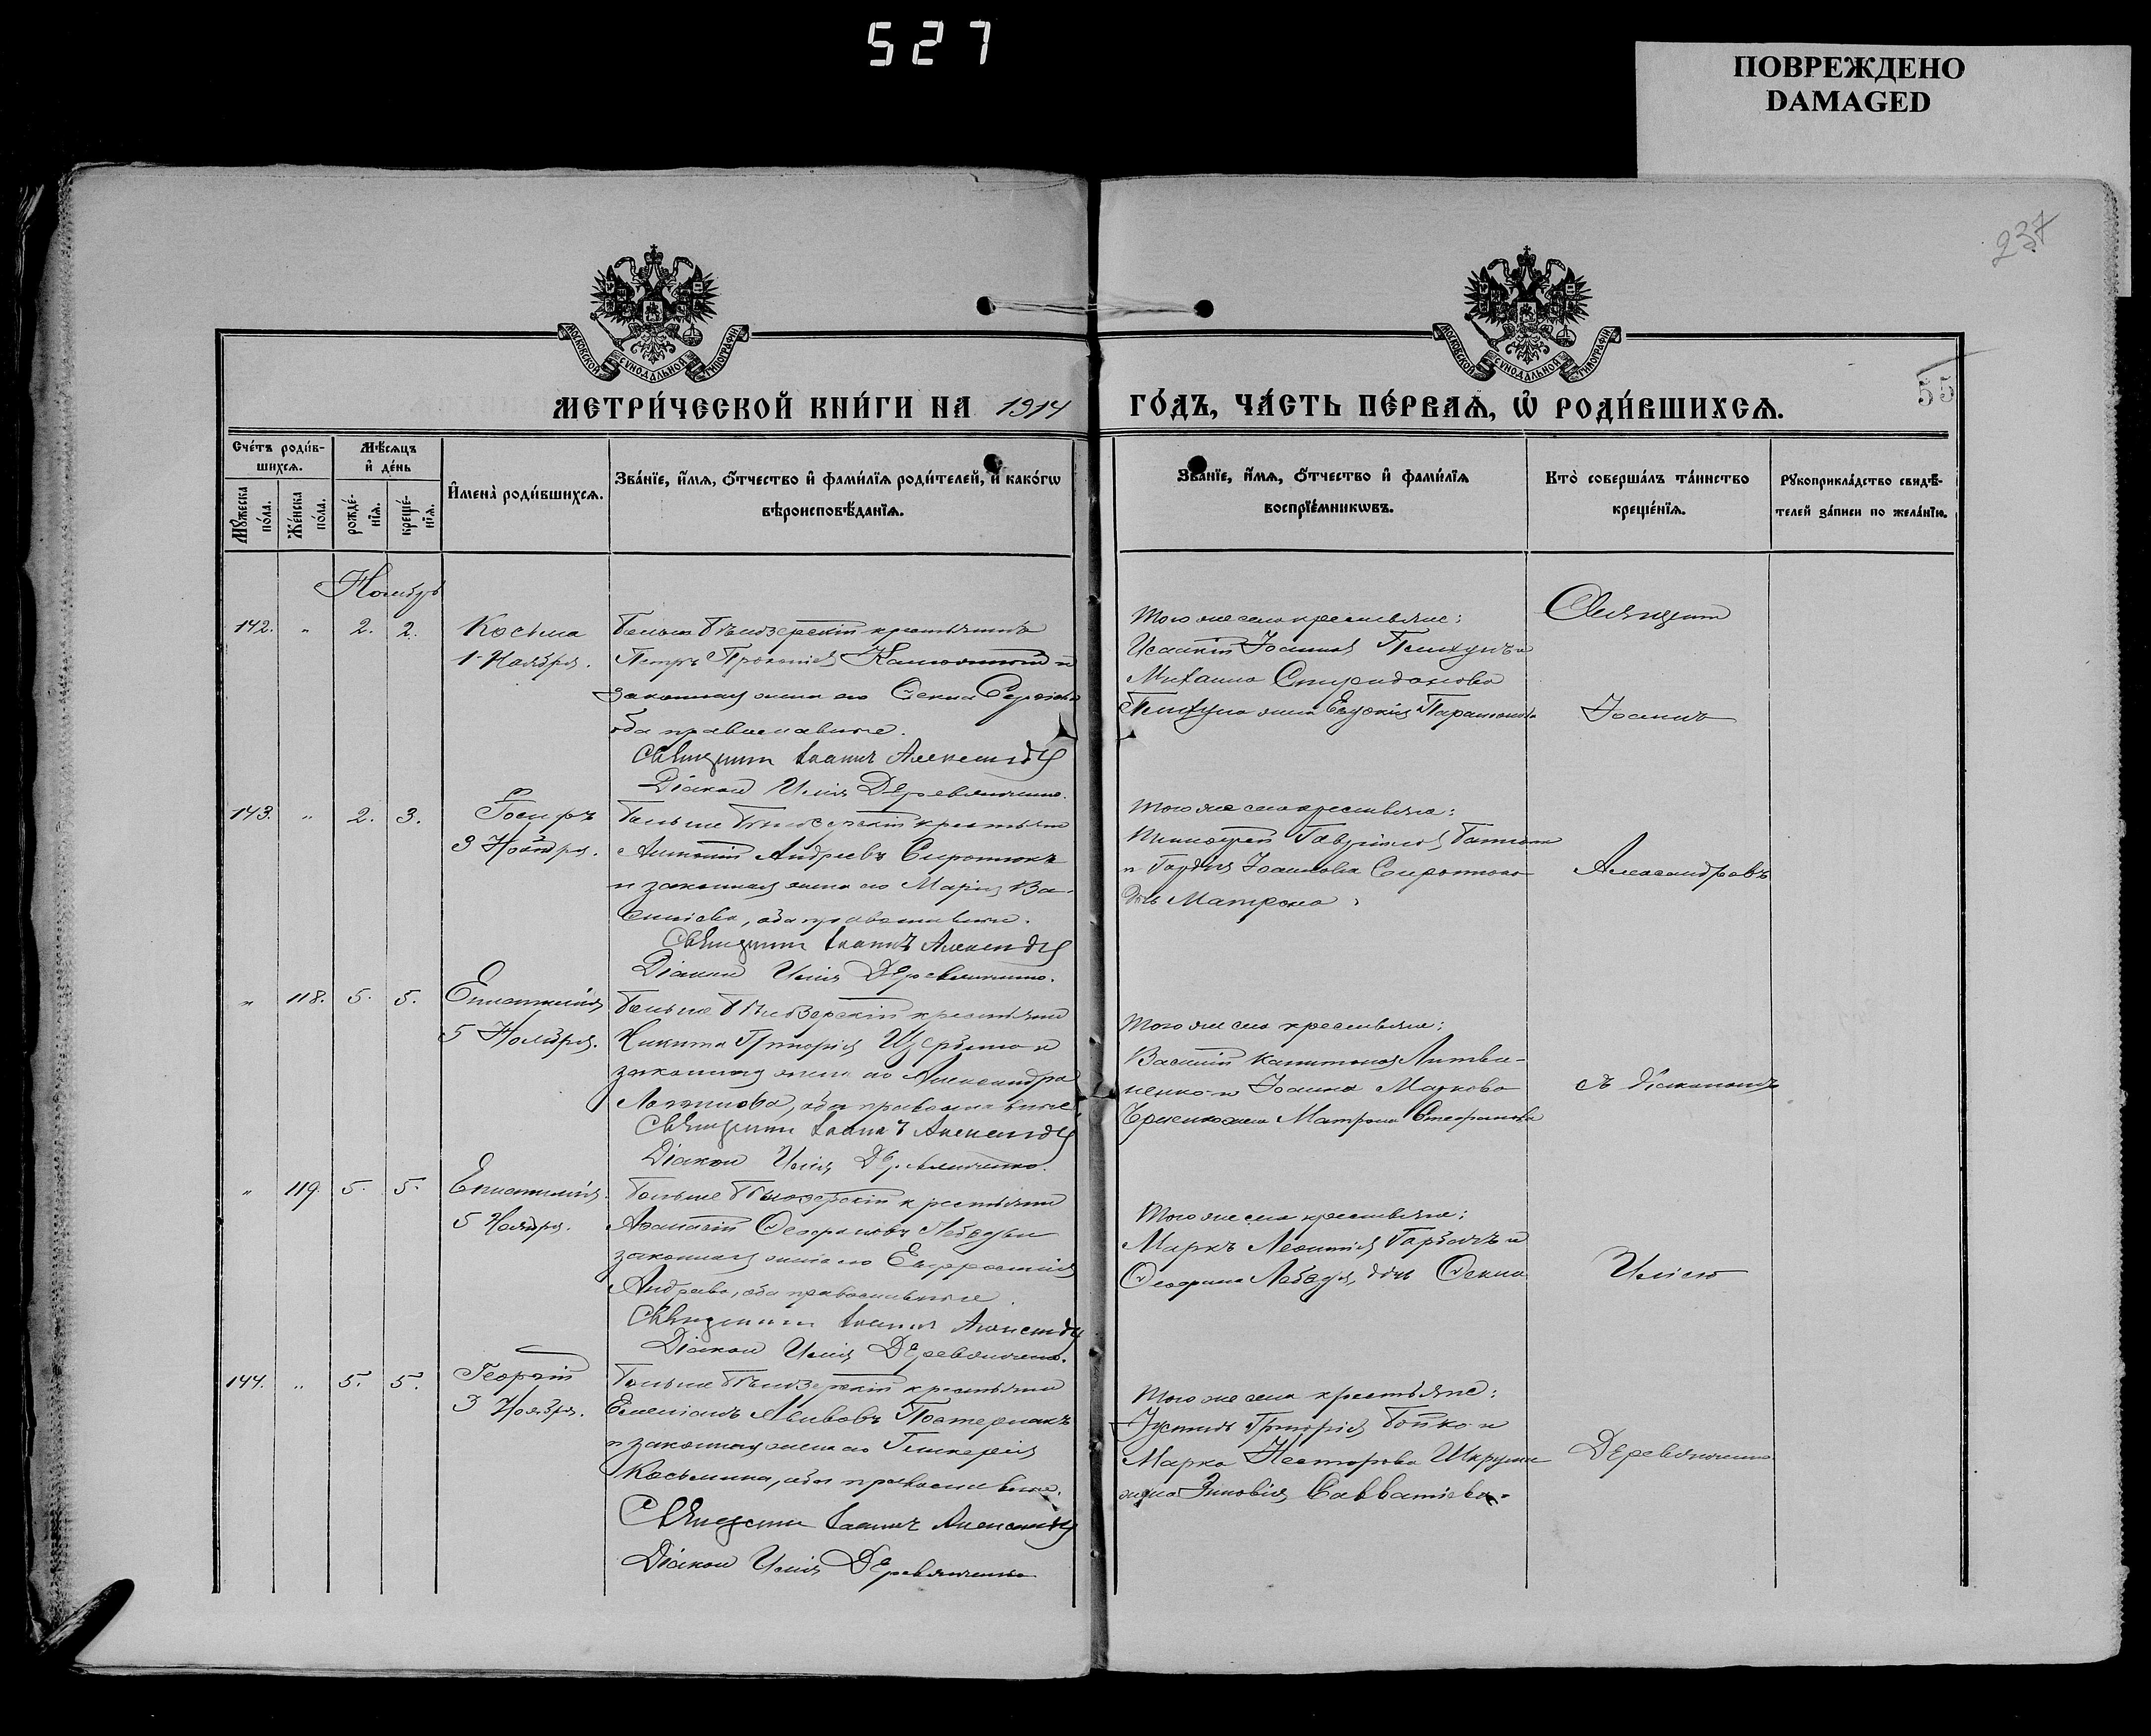 527
ПОВРЕЖДЕНО
DAMAGED
237
55
МОСКОВСКОЙ СѴНОДАЛЬНОЙ ТИПОГРАФІИ
МОСКОВСКОЙ СѴНОДАЛЬНОЙ ТИПОГРАФІИ
МЕТРИ́ЧЕСКОЙ КНИ́ГИ НА 1914
ГО́ДЪ, ЧА́СТЬ ПЕ́РВАѦ, Ѡ РОДИ́ВШИХСѦ.
Сче́тъ роди́в-
шихсѧ.
Мѣ́сѧцъ
и҆ де́нь
Мꙋ́жеска по́ла.
Же́нска по́ла.
рожде́-
нїѧ.
креще́-
нїѧ.
И҆мена̀ роди́вшихсѧ.
Зва́нїе, и҆́мѧ, ѻ҆́тчество и҆ фами́лїѧ роди́телей, и҆ како́гѡ
вѣроисповѣ́данїѧ.
Зва́нїе, и҆́мѧ, ѻ҆́тчество и҆ фами́лїѧ
воспрїе́мникѡвъ.
Кто̀ соверша́лъ та́инство
креще́нїѧ.
Рꙋкоприкла́дство свидѣ́-
телей за́писи по жела́нїю.
Ноябрь
142. " 2. 2. Косьма
1 Ноября.
Петръ Прокопіев
законная жена его Ѳекла Сергіева
оба православные.
Священникъ Іоаннъ Александровъ
Діаконъ Илія Деревянченко.
Того же села крестьяне:
Исаакій Іоаннов
Михаила Спиридонова
жена Евдокія Парамонова
Священник
Іоаннъ
143. " 2. 3.
3 Ноября.
Больше Бѣлозерскій крестьянин
Антоній Андреевъ Сиротюкъ
и законная жена его Марія Ва-
сильева, оба православные.
Священникъ Іоаннъ Александровъ
Діаконъ Илія Деревянченко.
Того же села крестьяне:
Гавріилов
и Іоаннова
дочь Матрона.
Александровъ
" 118. 5. 5. Епистимія
5 Ноября.
Больше Бѣлозерскій крестьянин
Никита Григоріев Щербина и
законная жена его Александра
Логгинова, оба православные
Священникъ Іоаннъ Александровъ
Діаконъ Илія Деревянченко.
Того же села крестьяне:
Василій Капитонов Литви-
ненко и Іоанна Маркова
жена Матрона Стефанова
съ діакономъ
" 119. 5. 5. Епистимія.
5 Ноября.
Больше Бѣлозерскій крестьянин
Аѳанасій Ѳеофановъ Лебедь и
законная жена его Евфросинія
оба православные.
Священникъ Іоаннъ Александровъ
Діаконъ Илія Деревянченко.
Того же села крестьяне:
Маркъ Леонтіев Горбачъ и
Ѳеофана Лебедя, дочь Ѳекла
Иліею
144. " 5. 5. Георгій
3 Ноября.
Больше Бѣлозерскій крестьянин
Емеліанъ Пастернакъ
и законная жена его Гликерія
Косьмина, оба православные.
Священникъ Іоаннъ Александровъ
Діаконъ Илія Деревянченко
Того же села крестьяне:
Іустинъ Григоріев Бойко и
Марка Несторова
жена Зиновія Савватіева.
Деревянченко